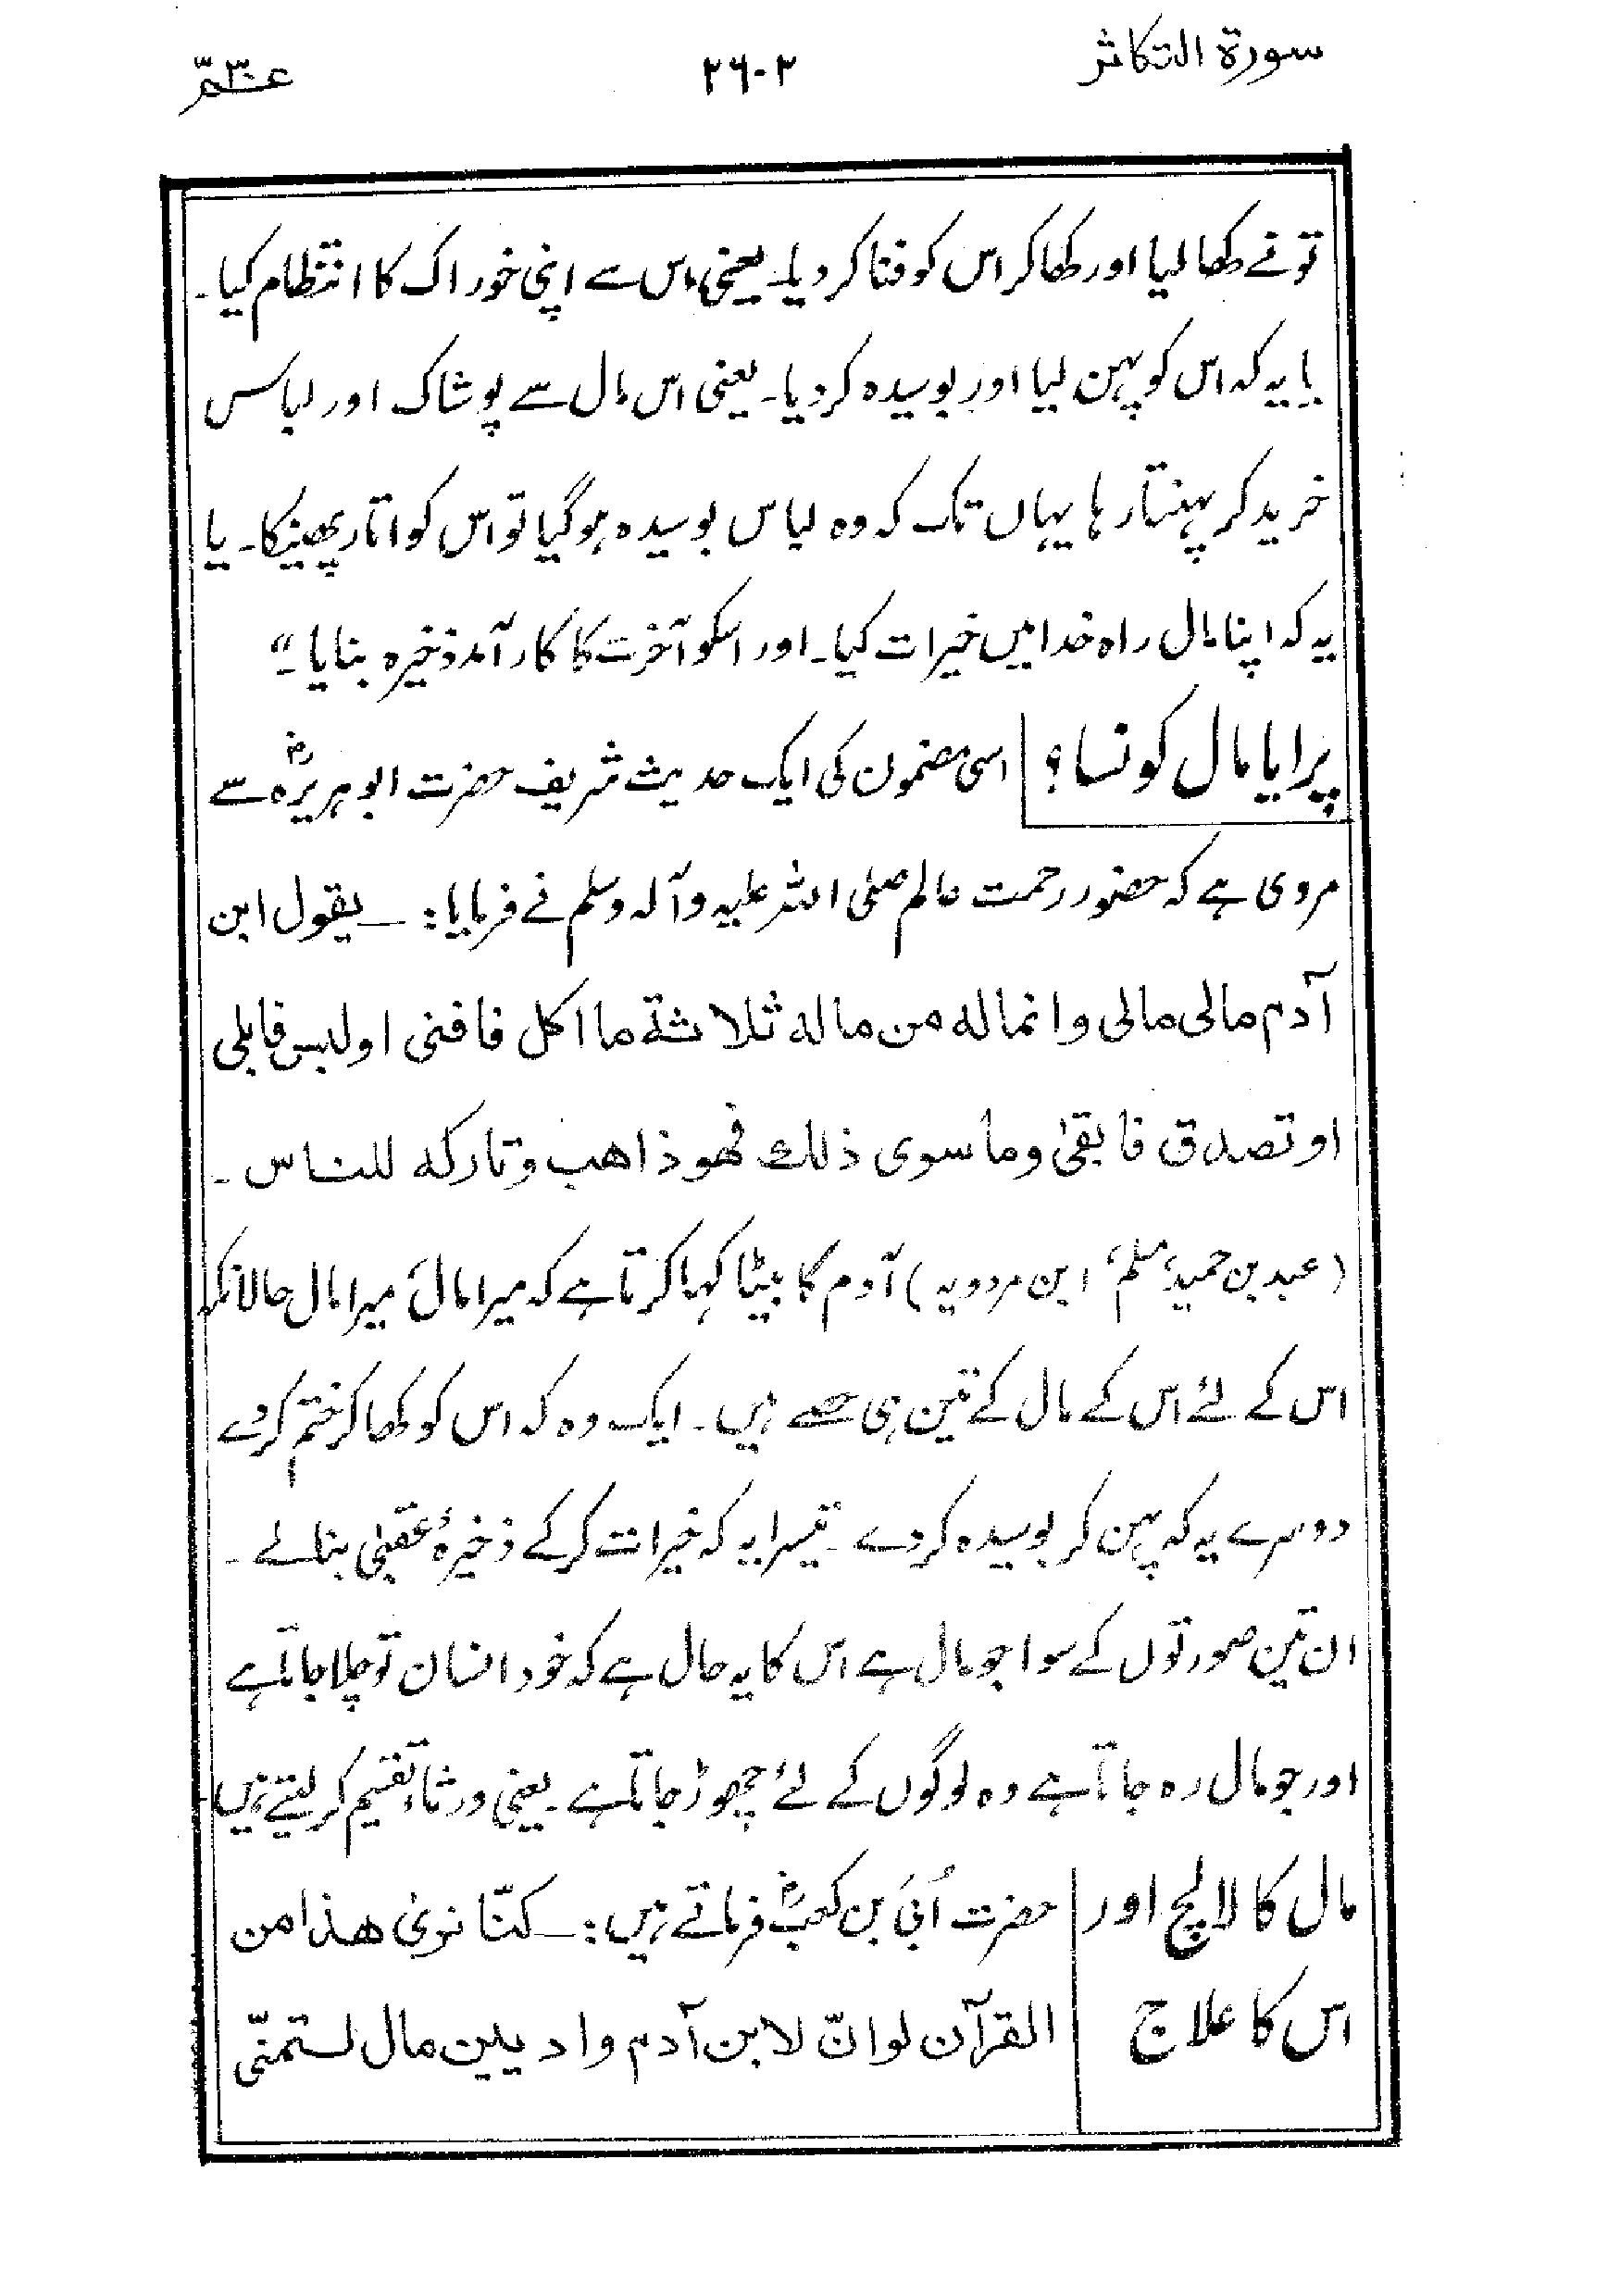 سورۃ التکاثر
۲٦۰۲
عمّ ۳۰
تونے کھالیا اور کھاکر اس کو فنا کر دیا۔ یعنی اس سے اپنی خوراک کا انتظام کیا۔
یا یہ کہ اس کو پہن لیا اور بوسیدہ کر دیا۔ یعنی اس مال سے پوشاک اور لباس
خرید کر پہنتا رہا یہاں تک کہ وہ لباس بوسیدہ ہوگیا تو اس کو اتار پھینکا۔ یا
یہ کہ اپنا مال راہ خدا میں خیرات کیا۔ اور اسکو آخرت کا کار آمد ذخیرہ بنایا۔"
پرایا مال کونسا؟ اسی مضمون کی ایک حدیث شریف حضرت ابو ہریرہؓ سے
مروی ہے کہ حضور رحمت عالم صلی اللہ علیہ وآلہ وسلم نے فرمایا:۔ یقول ابن
آدم مالی مالی وانما له من ماله ثلاثة ما اکل فافنی او لبس فابلی
او تصدق فابقیٰ وما سوی ذلك فهو ذاهب و تارکه للناس۔
(عبد بن حمید، مسلم، ابن مردویہ) آدم کا بیٹا کہا کرتا ہے کہ میرا مال، میرا مال حالانکہ
اس کے لئے اس کے مال کے تین ہی حصے ہیں۔ ایک وہ کہ اس کو کھا کر ختم کر دے
دوسرے یہ کہ پہن کر بوسیدہ کر دے۔ تیسرا یہ کہ خیرات کر کے ذخیرۂ عقبیٰ بنالے۔
ان تین صورتوں کے سوا جو مال ہے اس کا یہ حال ہے کہ خود انسان تو چلا جاتا ہے
اور جو مال رہ جاتا ہے وہ لوگوں کے لئے چھوڑ جاتا ہے۔ یعنی ورثاء تقسیم کر لیتے ہیں
مال کا لالچ اور حضرت اُبَی بن کعبؓ فرماتے ہیں:۔ کنّا نریٰ هذا من
اس کا علاج القرآن لو انّ لابن آدم وادیین مال لستمنّی